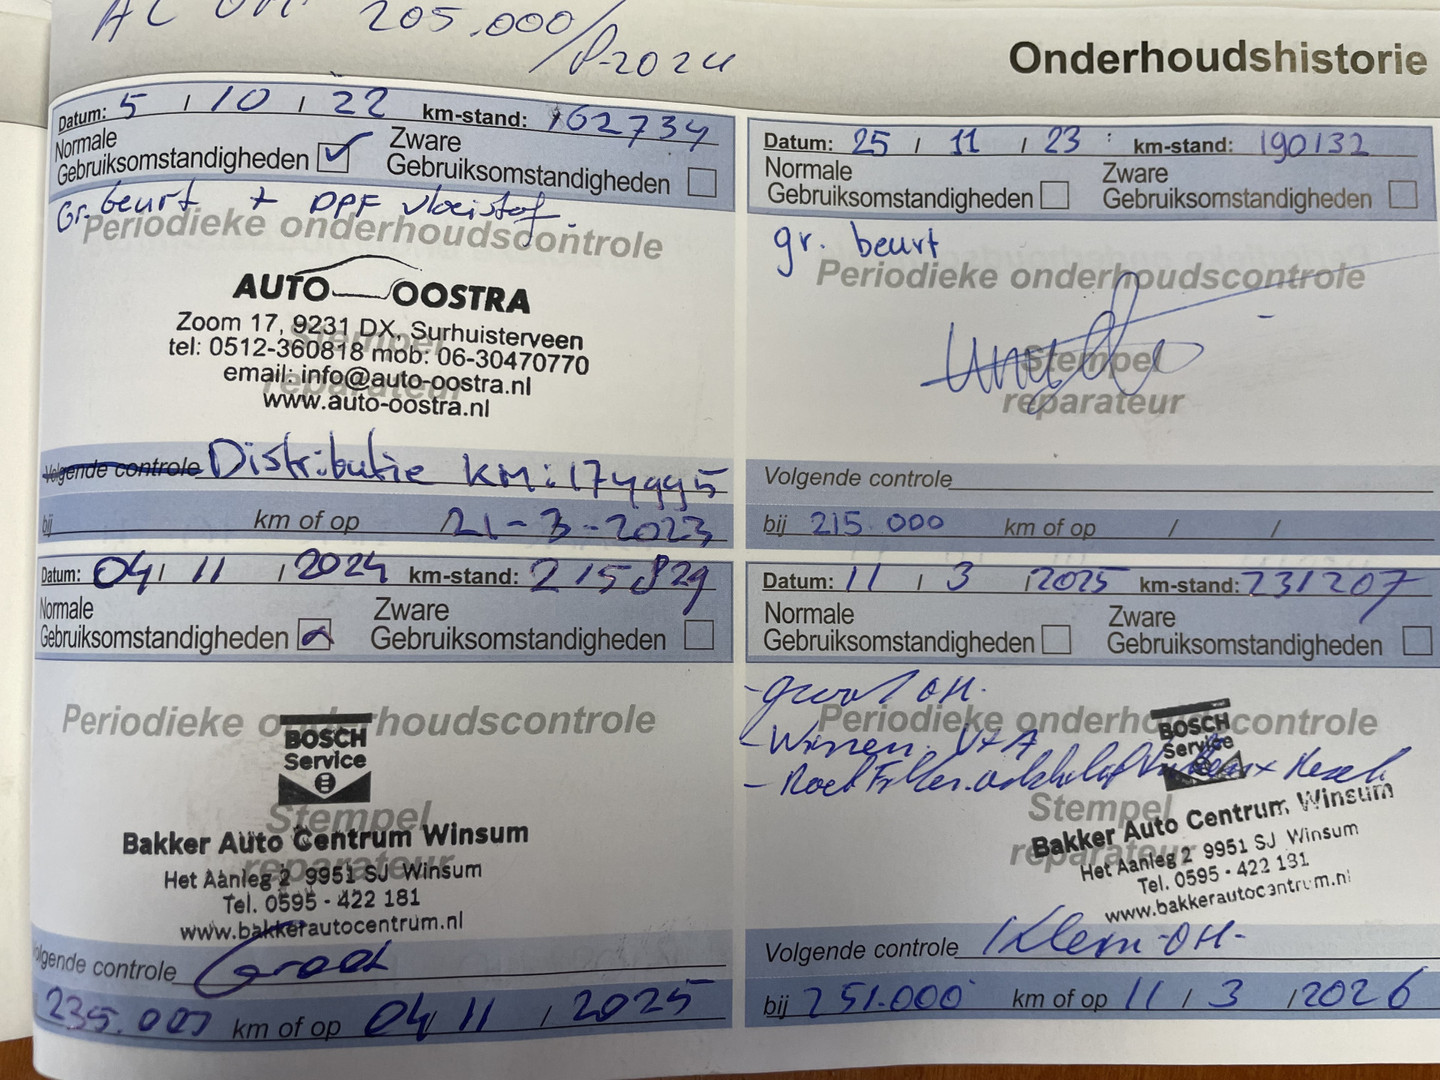 205.000/8-2024
Onderhoudshistorie
Datum: 5 / 10 / 22 km-stand: 162734
Normale
Gebruiksomstandigheden
Zware
Gebruiksomstandigheden
Gr. beurt + DPF vloeistof.
Periodieke onderhoudscontrole
AUTO OOSTRA
Zoom 17, 9231 DX, Surhuisterveen
tel: 0512-360818 mob: 06-30470770
email: info@auto-oostra.nl
www.auto-oostra.nl
Stempel
reparateur
Volgende controle Distributie KM: 174995
bij km of op 21-3-2023
Datum: 25 / 11 / 23 km-stand: 190132
Normale
Gebruiksomstandigheden
Zware
Gebruiksomstandigheden
gr. beurt
Periodieke onderhoudscontrole
Stempel
reparateur
Volgende controle
bij 215.000 km of op / /
Datum: 04 / 11 / 2024 km-stand: 215829
Normale
Gebruiksomstandigheden
Zware
Gebruiksomstandigheden
Periodieke onderhoudscontrole
BOSCH
Service
Stempel
reparateur
Bakker Auto Centrum Winsum
Het Aanleg 2 9951 SJ Winsum
Tel. 0595 - 422 181
www.bakkerautocentrum.nl
Volgende controle Groot
235.000 km of op 04/ 11 / 2025
Datum: 11 / 3 / 2025 km-stand: 231207
Normale
Gebruiksomstandigheden
Zware
Gebruiksomstandigheden
- groot OH.
Periodieke onderhoudscontrole
- Wissen. V+A
BOSCH
Service
Stempel
reparateur
Bakker Auto Centrum Winsum
Het Aanleg 2 9951 SJ Winsum
Tel. 0595 - 422 181
www.bakkerautocentrum.nl
Volgende controle Klein-OH-
bij 251.000 km of op 11 / 3 / 2026